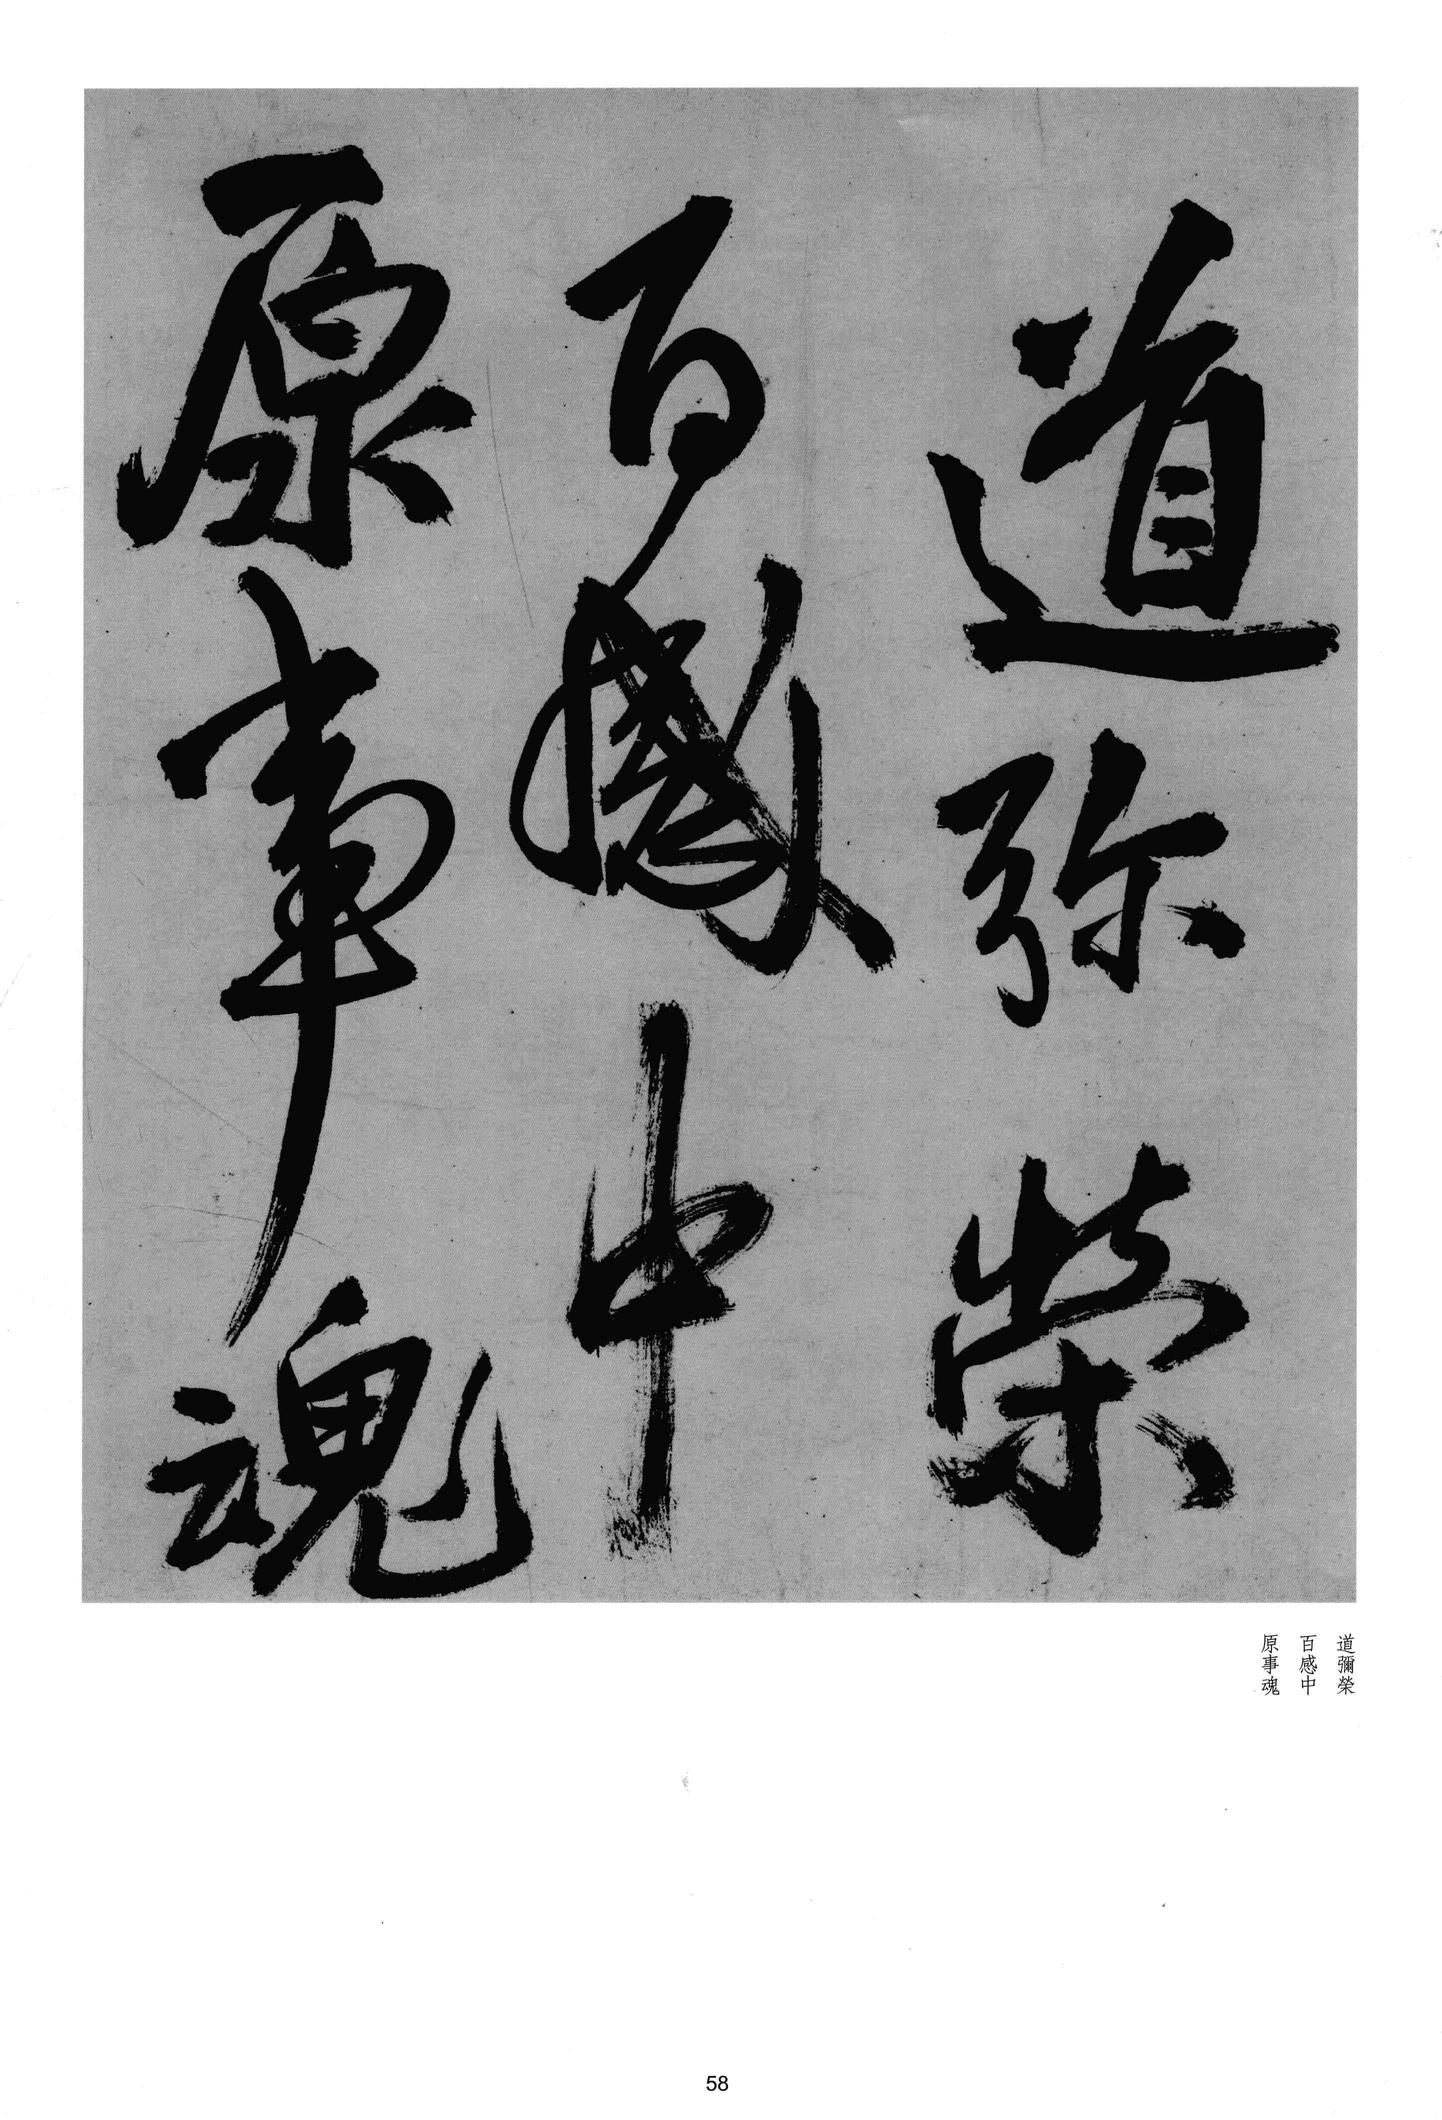 道弥榮
百感中
原事魂
道彌榮
百感中
原事魂
58